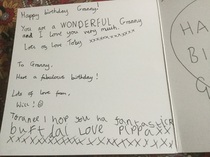 Happy birthday Granny!
You are a WONDERFUL Granny
and I love you very much.
Lots of love Toby xxxxxxxxxxx
To Granny,
Have a fabulous birthday!
Lots of love from,
Will!
I hop you ha fantastick
burtdal Love PippaXX
XXXXXXXXXXXXXXXXXXXX
HA
BI
G